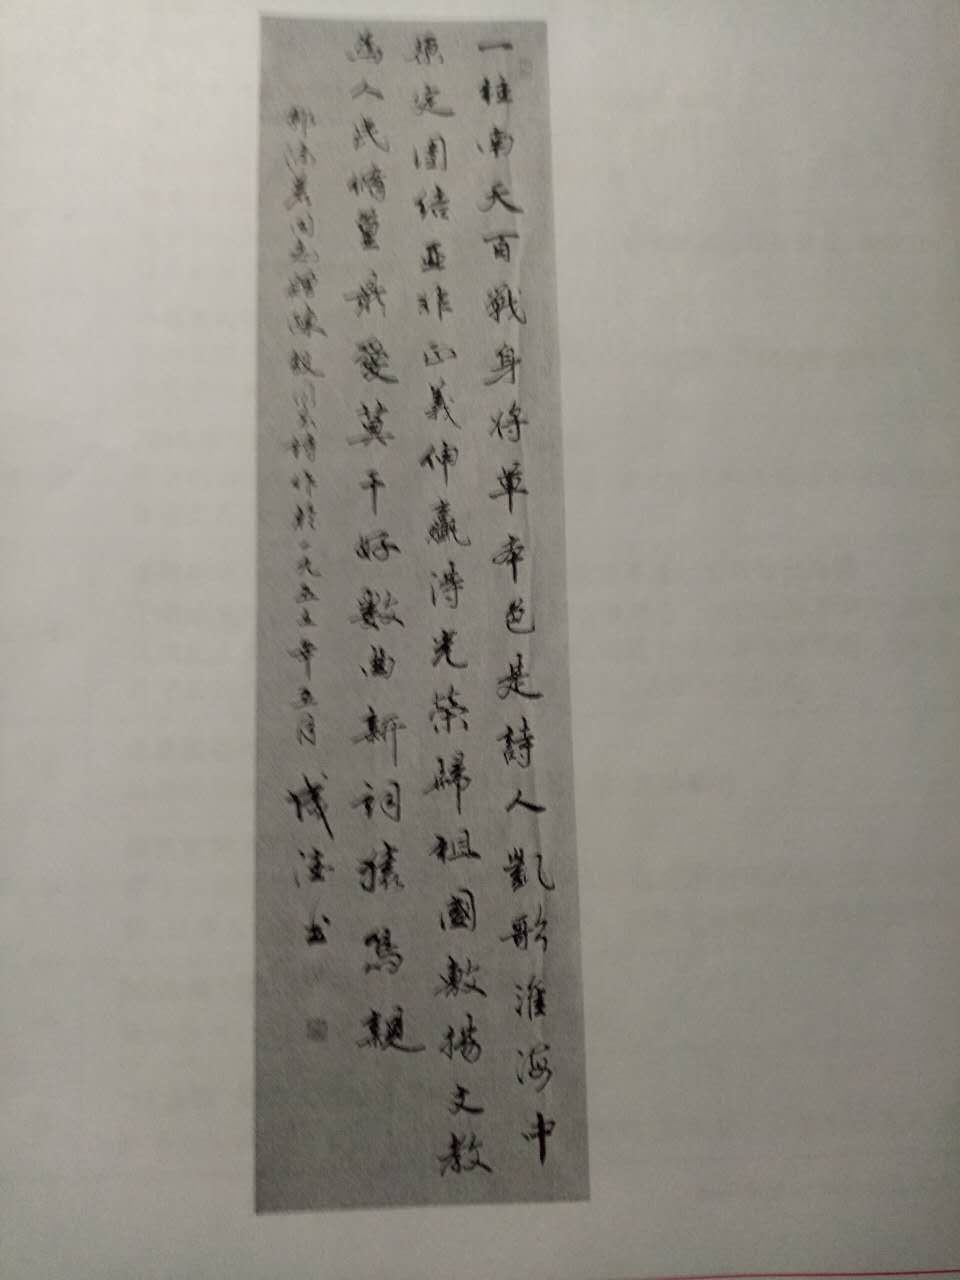 一柱南天百戰身將軍本色是詩人凱歌淮海中
原定團結亞非正義伸贏得光榮歸祖國敷揚文教
為人民脩篁最愛莫干好數曲新詞猿鳥親
同志贈陳毅同志詩作於一九五五年五月
書